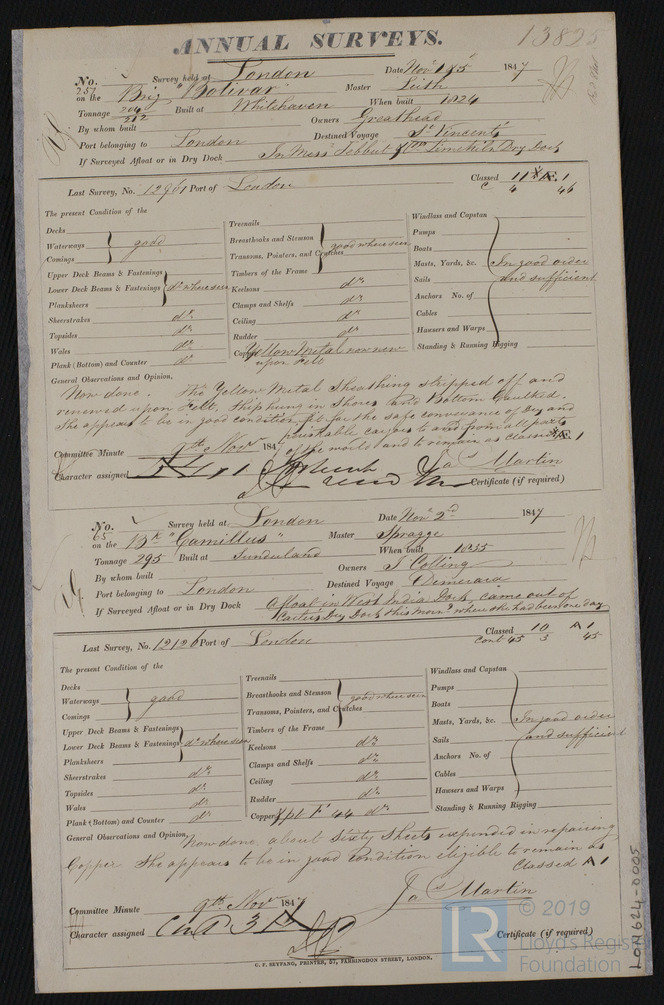 ANNUAL SURVEYS.
No. Survey held at London Date Nov 1847
257 on the Brig "Bolivar" Master Leith
Tonnage 204 212 Built at Whitehaven When built 1824
By whom built Owners Greathead
Port belonging to London Destined Voyage St Vincents
If Surveyed Afloat or in Dry Dock In Limekiln Dry Dock
Last Survey, No. 12961 Port of London Classed
The present Condition of the
Decks
Waterways } good
Comings
Upper Deck Beams & Fastenings
Lower Deck Beams & Fastenings } do where seen
Planksheers
Sheerstrakes do
Topsides do
Wales do
Plank (Bottom) and Counter do
Treenails
Breasthooks and Stemson } good where seen
Transoms, Pointers, and Crutches
Timbers of the Frame
Keelsons do
Clamps and Shelfs do
Ceiling do
Rudder do
Copper Yellow Metal now new
upon Felt
Windlass and Capstan
Pumps
Boats
Masts, Yards, &c. In good order
Sails and sufficient
Anchors No. of
Cables
Hawsers and Warps
Standing & Running Rigging
General Observations and Opinion,
Now done. The Yellow Metal Sheathing stripped off and
renewed upon Felt, Shores and Bottom Caulked.
She appears to be in good condition fit for the safe conveyance of Dry and
perishable cargoes to and from all parts
of the world and to remain as Classed Æ 1
Committee Minute 9th Novr 1847
Character assigned Jas Martin
Certificate (if required)
No. Survey held at London Date Novr 2d 1847
65 on the Bk "Camillus" Master Spragge
Tonnage 295 Built at Sunderland When built 1835
By whom built Owners J Colling
Port belonging to London Destined Voyage Demerara
If Surveyed Afloat or in Dry Dock Afloat in West India Dock, came out of
Dry Dock this morng where she had been one day
Last Survey, No. 12126 Port of London Classed 10 A 1
Cont 45 5 45
The present Condition of the
Decks
Waterways } good
Comings
Upper Deck Beams & Fastenings
Lower Deck Beams & Fastenings } do where seen
Planksheers
Sheerstrakes do
Topsides do
Wales do
Plank (Bottom) and Counter do
Treenails
Breasthooks and Stemson } good where seen
Transoms, Pointers, and Crutches
Timbers of the Frame
Keelsons do
Clamps and Shelfs do
Ceiling do
Rudder do
Copper 44 do
Windlass and Capstan
Pumps
Boats
Masts, Yards, &c. In good order
Sails and sufficient
Anchors No. of
Cables
Hawsers and Warps
Standing & Running Rigging
General Observations and Opinion, Now done about Sixty Sheets expended in repairing
Copper. She appears to be in good condition eligible to remain as
Classed A 1
Jas Martin
Committee Minute 9th Novr 1847
Character assigned
Certificate (if required)
C. F. SEYFANG, PRINTER, 57, FARRINGDON STREET, LONDON.
LR © 2019
Lloyd's Register
Foundation
LON624-0005